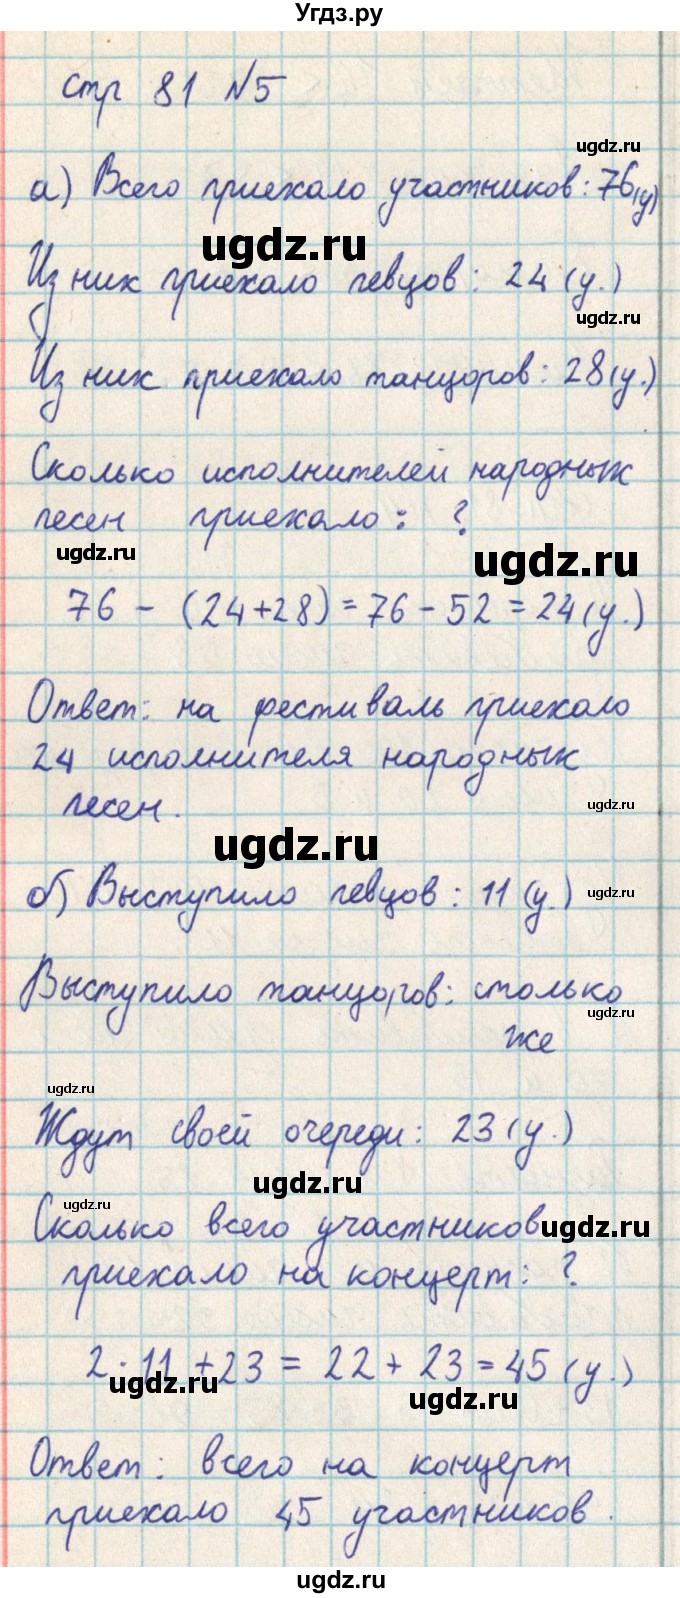 Угдз.ру
стр 81 №5
ugdz.ru
а) Всего приехало участников: 76(у)
ugdz.ru
Из них приехало певцов: 24 (у.)
ugdz.ru
Из них приехало танцоров: 28(у.)
Сколько исполнителей народных
песен приехало: ?
ugdz.ru
ugdz.ru
76 - (24+28) = 76 - 52 = 24(у.)
Ответ: на фестиваль приехало
24 исполнителя народных
песен.
ugdz.ru
ugdz.ru
б) Выступило певцов: 11 (у.)
ugdz.ru
Выступило танцоров: столько
ugdz.ru
же
ugdz.ru
Ждут своей очереди: 23 (у.)
ugdz.ru
ugdz.ru
Сколько всего участников
ugdz.ru
приехало на концерт: ?
2 · 11 + 23 = 22 + 23 = 45 (у.)
ugdz.ru
ugdz.ru
Ответ: всего на концерт
приехало 45 участников.
ugdz.ru